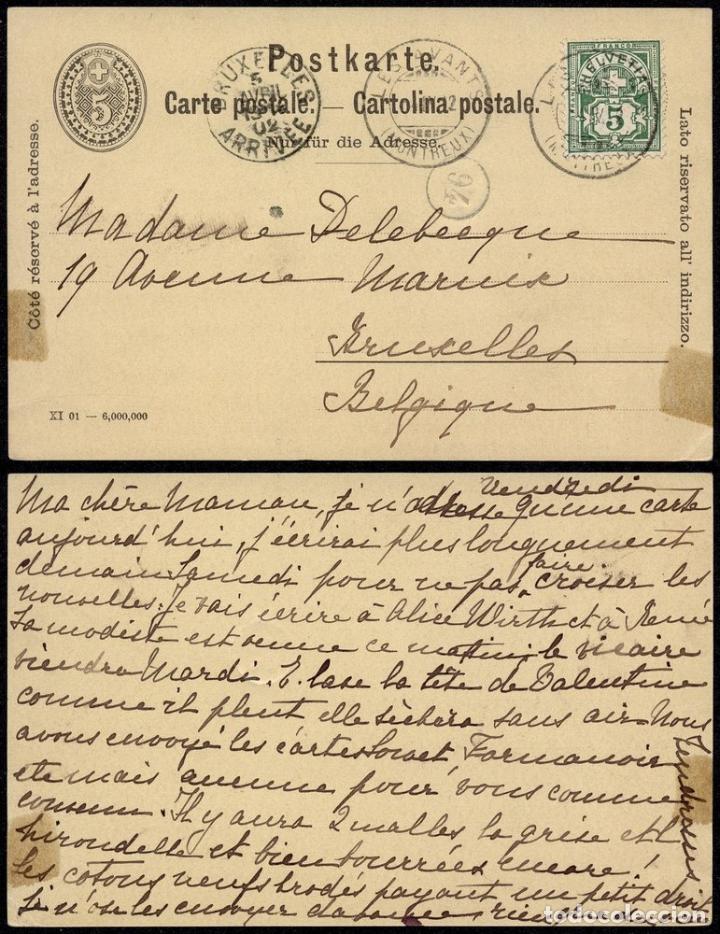 Postkarte.
Carte postale. — Cartolina postale.
Nur für die Adresse.
Côté réservé à l'adresse.
Lato riservato all' indirizzo.
5
BRUXELLES
5
AVRIL
02
ARRIVÉE
LES AVANTS
(MONTREUX)
FRANCO
HELVETIA
5
94
Madame Delebecque
19 Avenue Marnix
Bruxelles
Belgique
XI 01 — 6,000,000
Vendredi
Ma chère Maman, je n'adresse qu'une carte
aujourd'hui, j'écrirai plus longuement
demain Samedi pour ne pas faire croiser les
nouvelles. Je vais écrire à Alice Wirth et à René
La modiste est venue ce matin, le vicaire
viendra Mardi. E. lave la tête de Valentine
comme il pleut elle sèchera sans air. Nous
avons envoyé les cartes Formanoir
etc mais aucune pour vous comme
convenu. Il y aura 2 malles la grise et l
hirondelle et bien bourrées encore!
Les cotons neufs brodés payant un petit droit
je n'ose les envoyer
todocoleccion